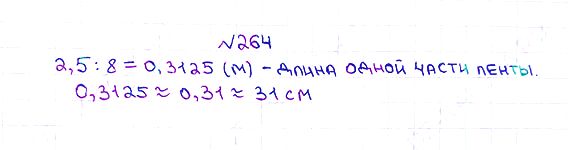 №264
2,5 : 8 = 0,3125 (м) - длина одной части ленты.
0,3125 ≈ 0,31 ≈ 31 см